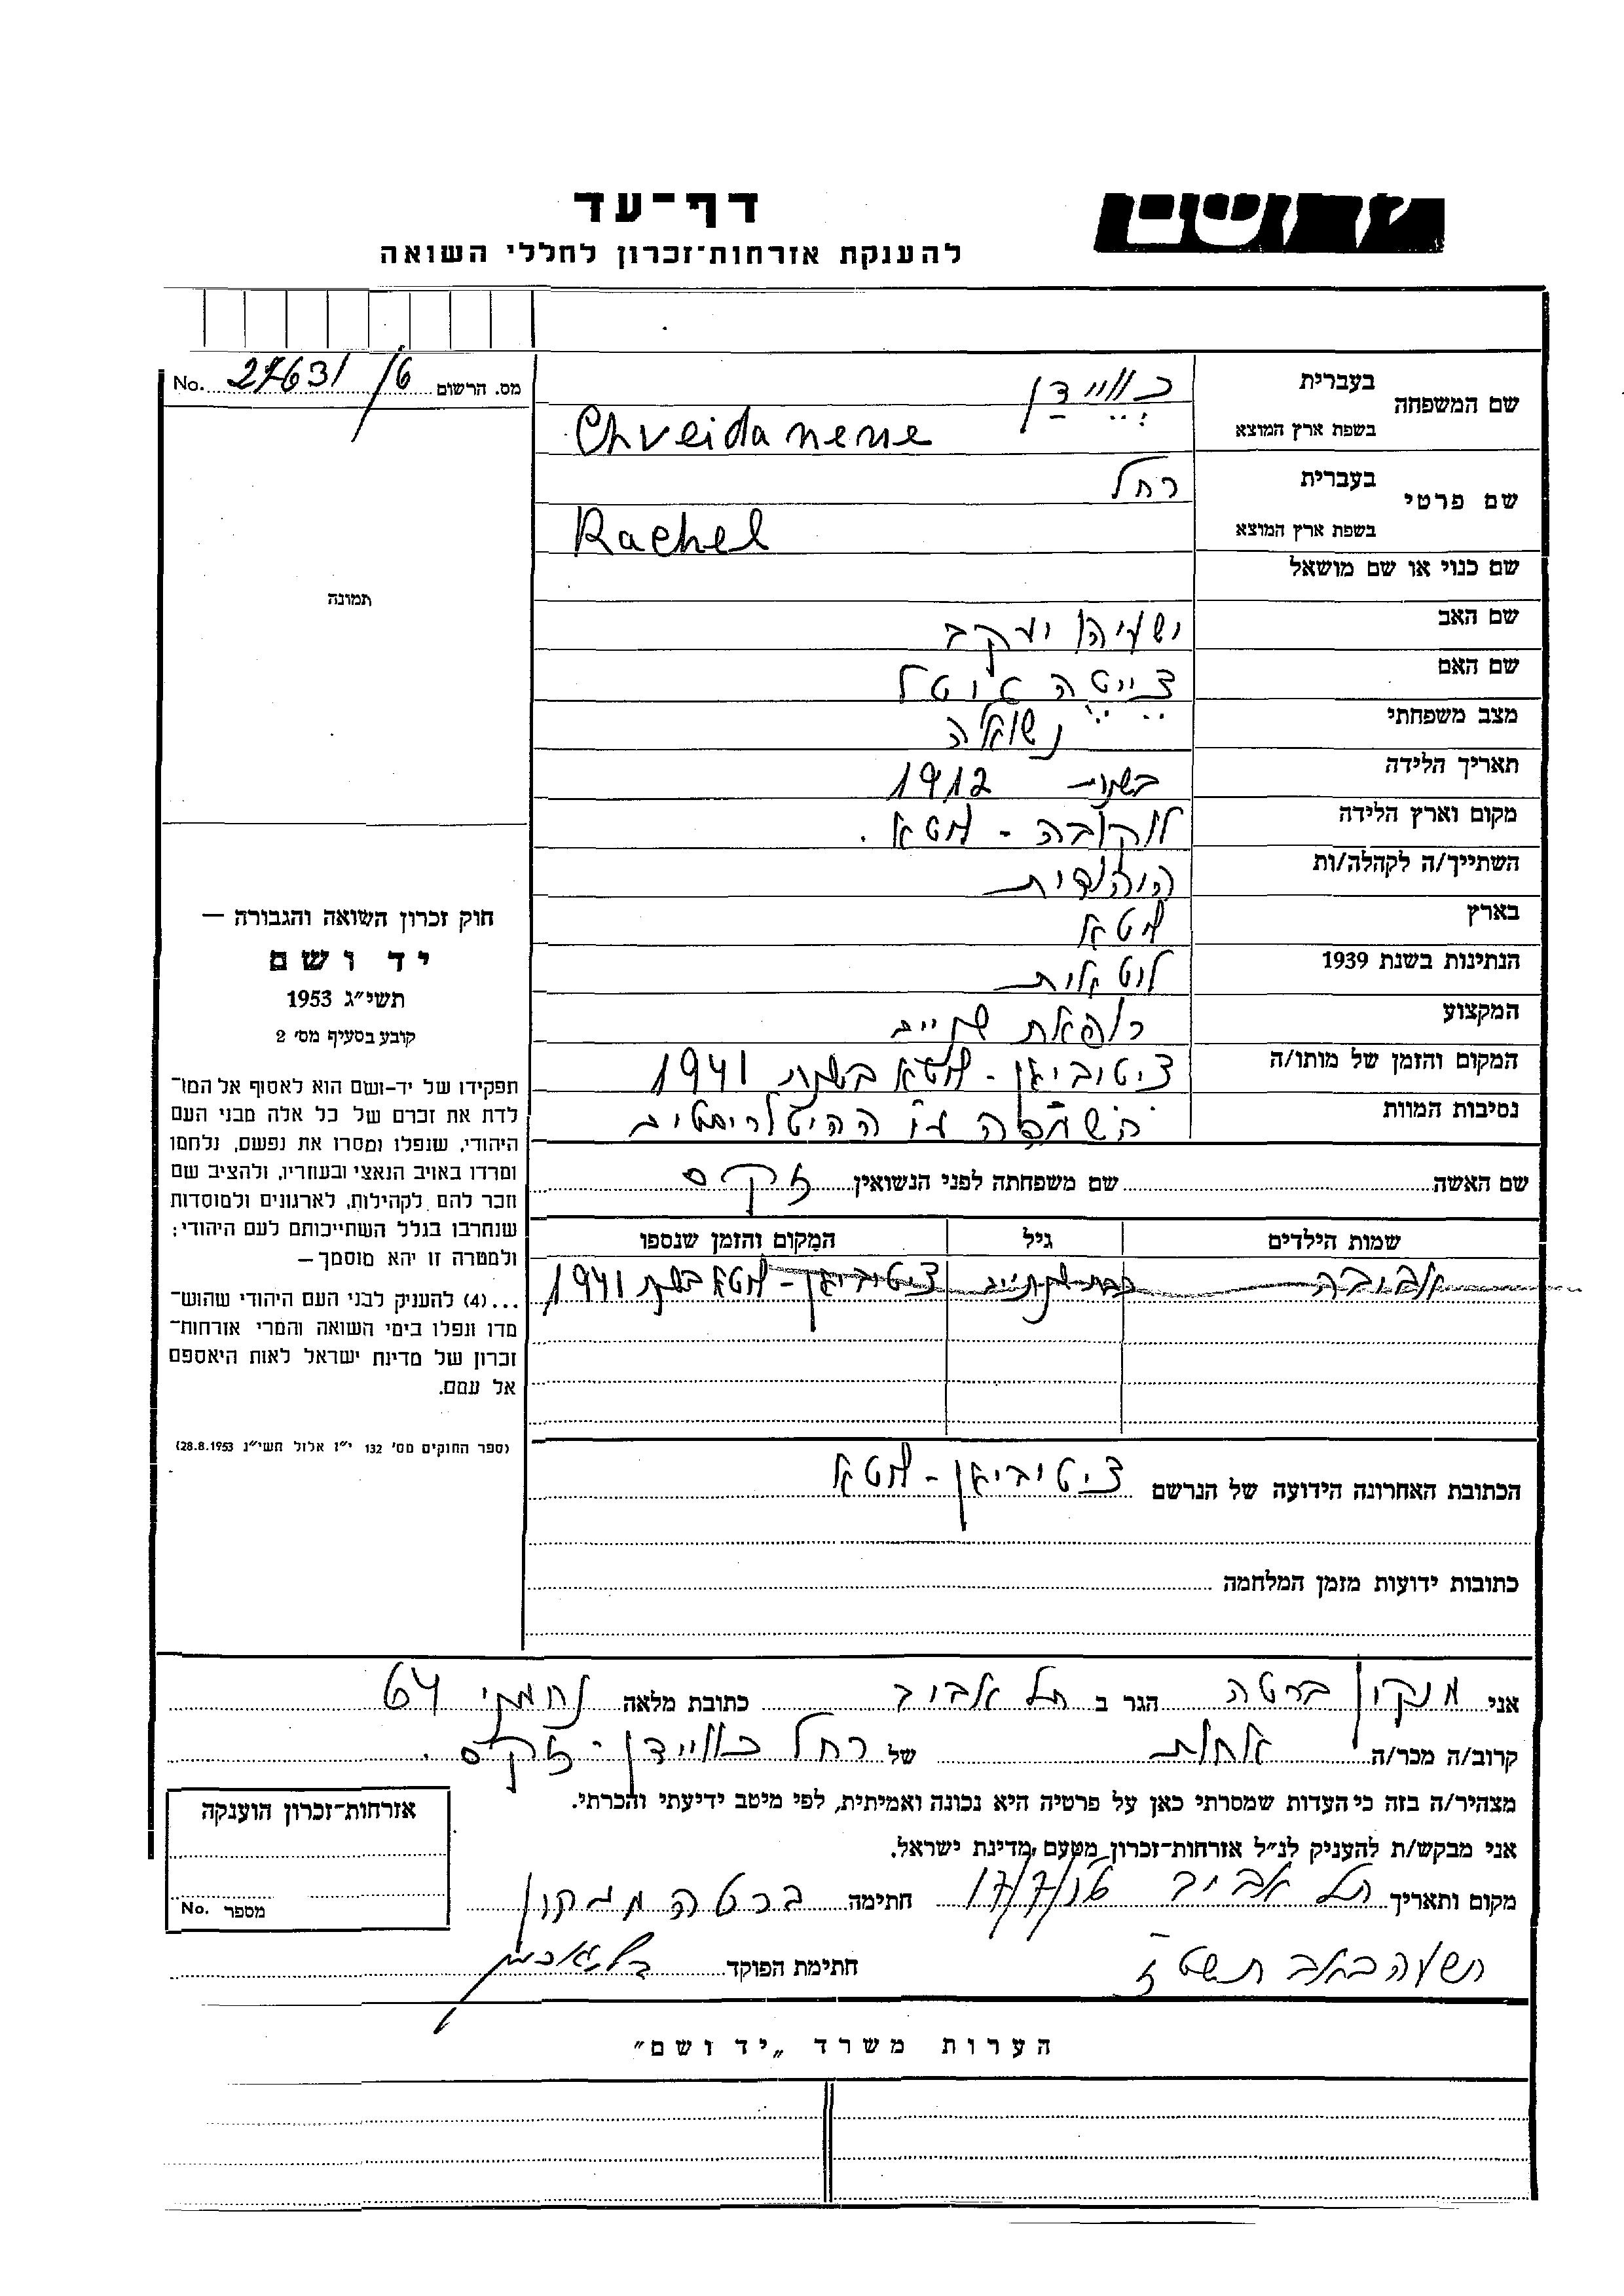 יד ושם
דף־עד
להענקת אזרחות־זכרון לחללי השואה
מס. הרשום 27631/6 No.
שם המשפחה
בעברית
כוויידן
בשפת ארץ המוצא
Chveidanene
שם פרטי
בעברית
רחל
בשפת ארץ המוצא
Rachel
שם כנוי או שם מושאל
שם האב ישעיהו יעקב
שם האם צייטה
מצב משפחתי נשואה
תאריך הלידה בשנת 1912
מקום וארץ הלידה
השתייך/ה לקהלה/ות היהודית
בארץ ליטא
הנתינות בשנת 1939 ליטאית
המקצוע
המקום והזמן של מותו/ה ציטוביאן - ליטא בשנת 1941
נסיבות המוות הושמדה ההיטלריסטים
שם האשה שם משפחתה לפני הנשואין זקס
שמות הילדים גיל המקום והזמן שנספו
ציטוביאן - ליטא בשנת 1941
הכתובת האחרונה הידועה של הנרשם ציטוביאן - ליטא
כתובות ידועות מזמן המלחמה
תמונה
חוק זכרון השואה והגבורה —
יד ושם
תשי״ג 1953
קובע בסעיף מס׳ 2
תפקידו של יד-ושם הוא לאסוף אל המו־
לדת את זכרם של כל אלה מבני העם
היהודי, שנפלו ומסרו את נפשם, נלחמו
ומרדו באויב הנאצי ובעוזריו, ולהציב שם
וזכר להם, לקהילות, לארגונים ולמוסדות
שנחרבו בגלל השתייכותם לעם היהודי;
ולמטרה זו יהא מוסמך —
...(4) להעניק לבני העם היהודי שהוש־
מדו ונפלו בימי השואה והמרי אזרחות־
זכרון של מדינת ישראל לאות היאספם
אל עמם.
(ספר החוקים מס׳ 132 י״ז אלול תשי״ג 28.8.1953)
אני מנקין ברטה הגר ב תל אביב כתובת מלאה נחמני 64
קרוב/ה מכר/ה אחות של רחל כוויידן - זקס.
מצהיר/ה בזה כי העדות שמסרתי כאן על פרטיה היא נכונה ואמיתית, לפי מיטב ידיעתי והכרתי.
אני מבקש/ת להעניק לנ״ל אזרחות־זכרון מטעם מדינת ישראל.
מקום ותאריך תל אביב חתימה ברטה מנקין
חתימת הפוקד
אזרחות־זכרון הוענקה
מספר No.
הערות משרד „יד ושם״